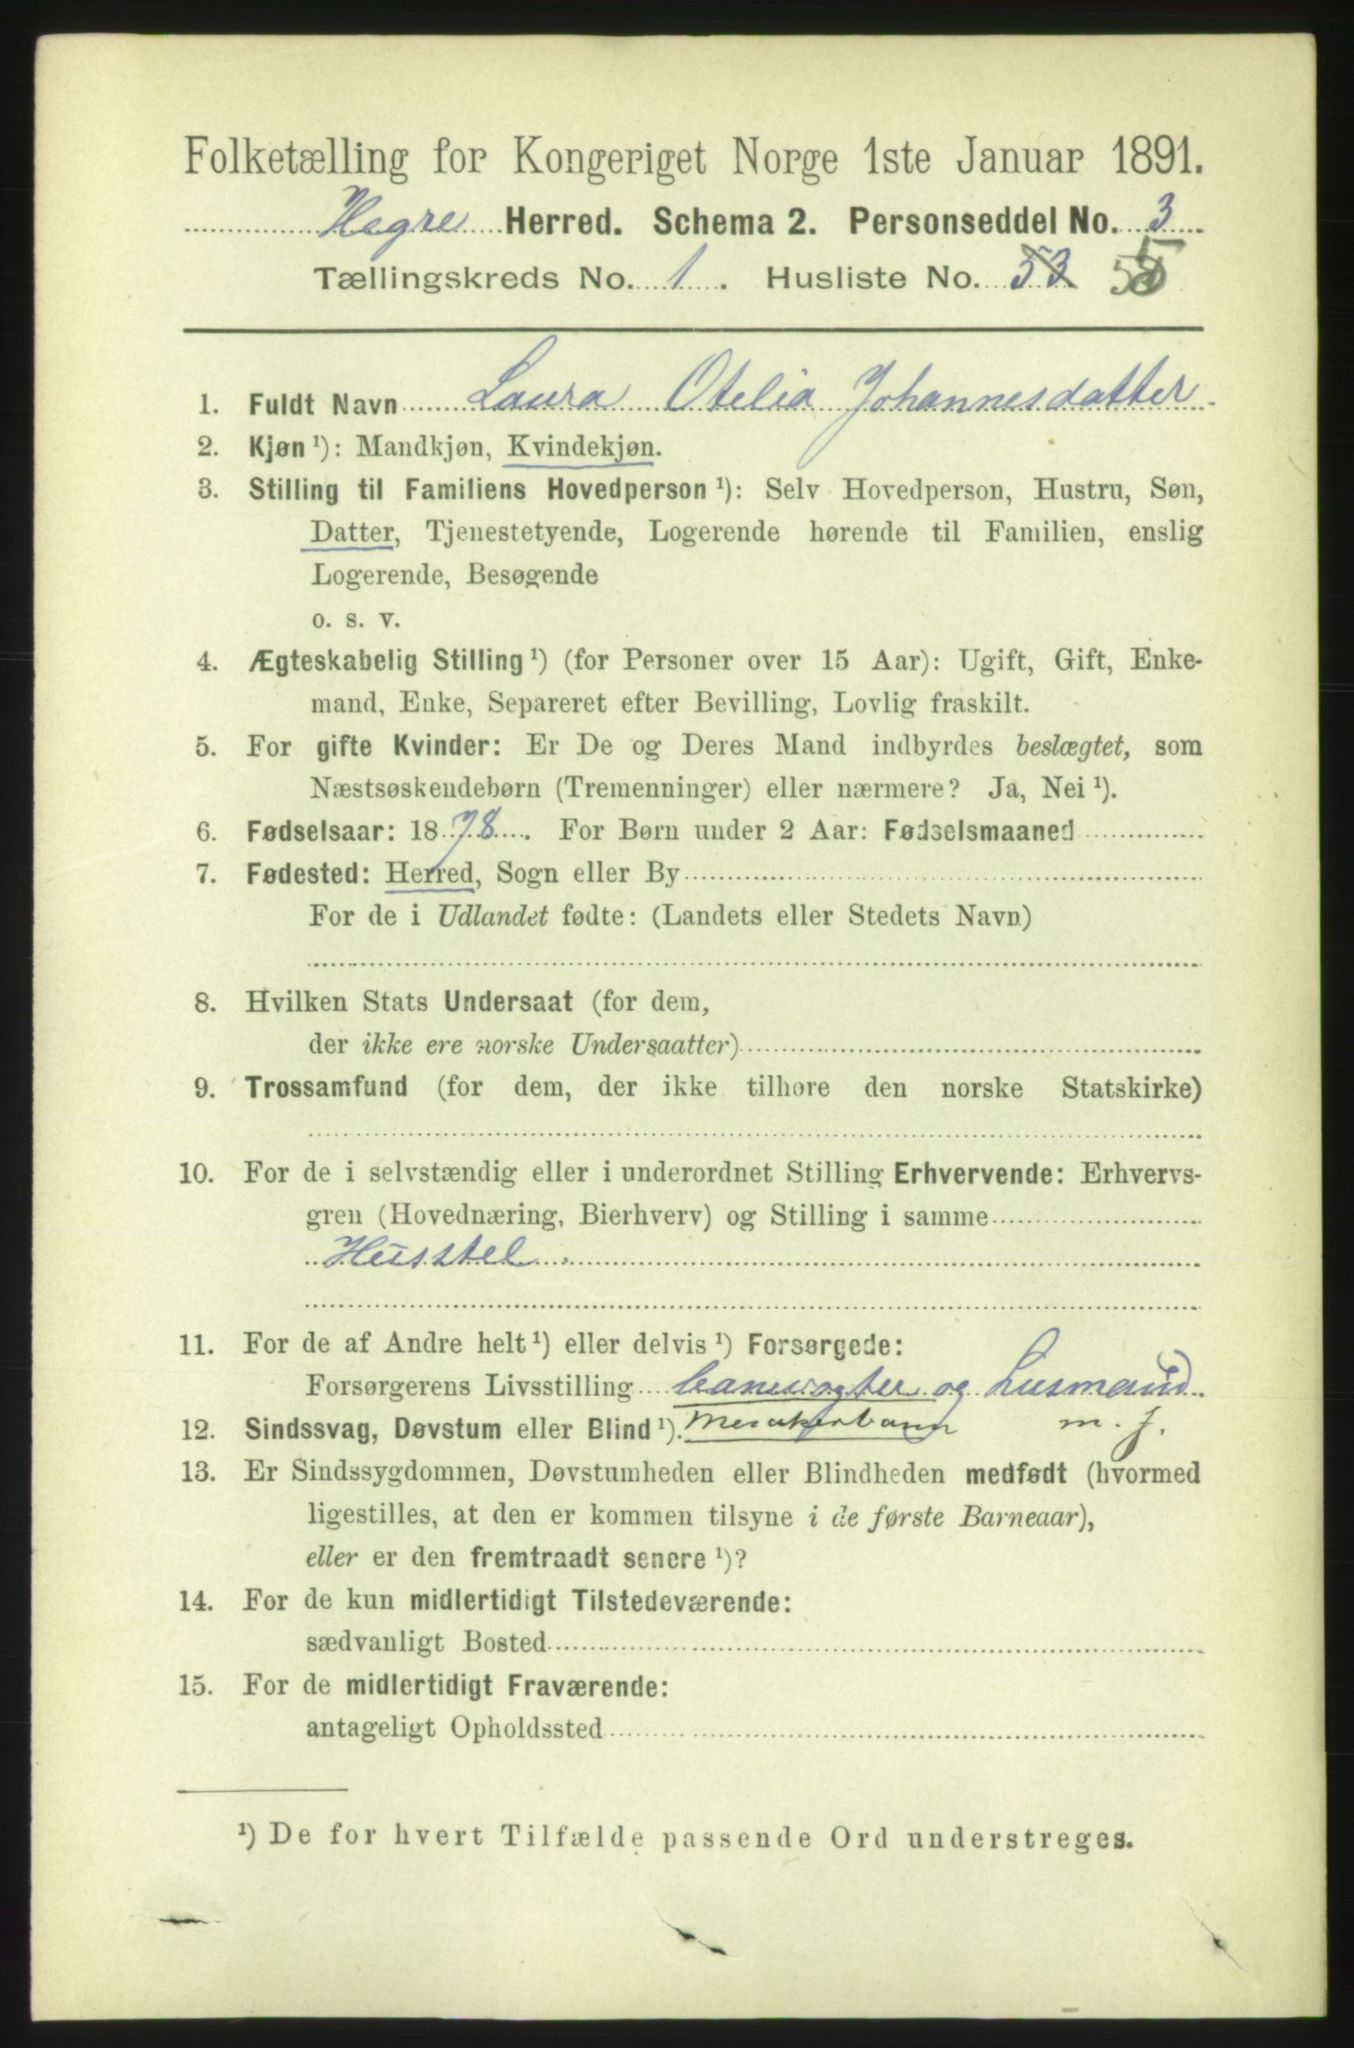 Folketælling for Kongeriget Norge 1ste Januar 1891.
Hegre Herred. Schema 2. Personseddel No. 3
Tællingskreds No. 1. Husliste No. 53 55
1. Fuldt Navn Laura Otelia Johannesdatter
2. Kjøn ¹): Mandkjøn, Kvindekjøn.
3. Stilling til Familiens Hovedperson ¹): Selv Hovedperson, Hustru, Søn,
Datter, Tjenestetyende, Logerende hørende til Familien, enslig
Logerende, Besøgende
o. s. v.
4. Ægteskabelig Stilling ¹) (for Personer over 15 Aar): Ugift, Gift, Enke-
mand, Enke, Separeret efter Bevilling, Lovlig fraskilt.
5. For gifte Kvinder: Er De og Deres Mand indbyrdes beslægtet, som
Næstsøskendebørn (Tremenninger) eller nærmere? Ja, Nei ¹).
6. Fødselsaar: 1878. For Børn under 2 Aar: Fødselsmaaned
7. Fødested: Herred, Sogn eller By
For de i Udlandet fødte: (Landets eller Stedets Navn)
8. Hvilken Stats Undersaat (for dem,
der ikke ere norske Undersaatter)
9. Trossamfund (for dem, der ikke tilhøre den norske Statskirke)
10. For de i selvstændig eller i underordnet Stilling Erhvervende: Erhvervs-
gren (Hovednæring, Bierhverv) og Stilling i samme
Husstel
11. For de af Andre helt ¹) eller delvis ¹) Forsørgede:
Forsørgerens Livsstilling banevogter og Husmand
12. Sindssvag, Døvstum eller Blind ¹). Merakerbanen m. j.
13. Er Sindssygdommen, Døvstumheden eller Blindheden medfødt (hvormed
ligestilles, at den er kommen tilsyne i de første Barneaar),
eller er den fremtraadt senere ¹)?
14. For de kun midlertidigt Tilstedeværende:
sædvanligt Bosted
15. For de midlertidigt Fraværende:
antageligt Opholdssted
¹) De for hvert Tilfælde passende Ord understreges.